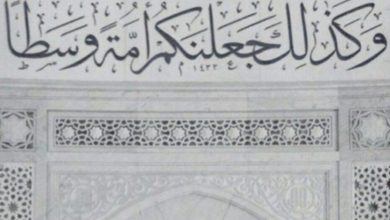 وكذلك جعلنكم أمة وسطا
١٤٢٢